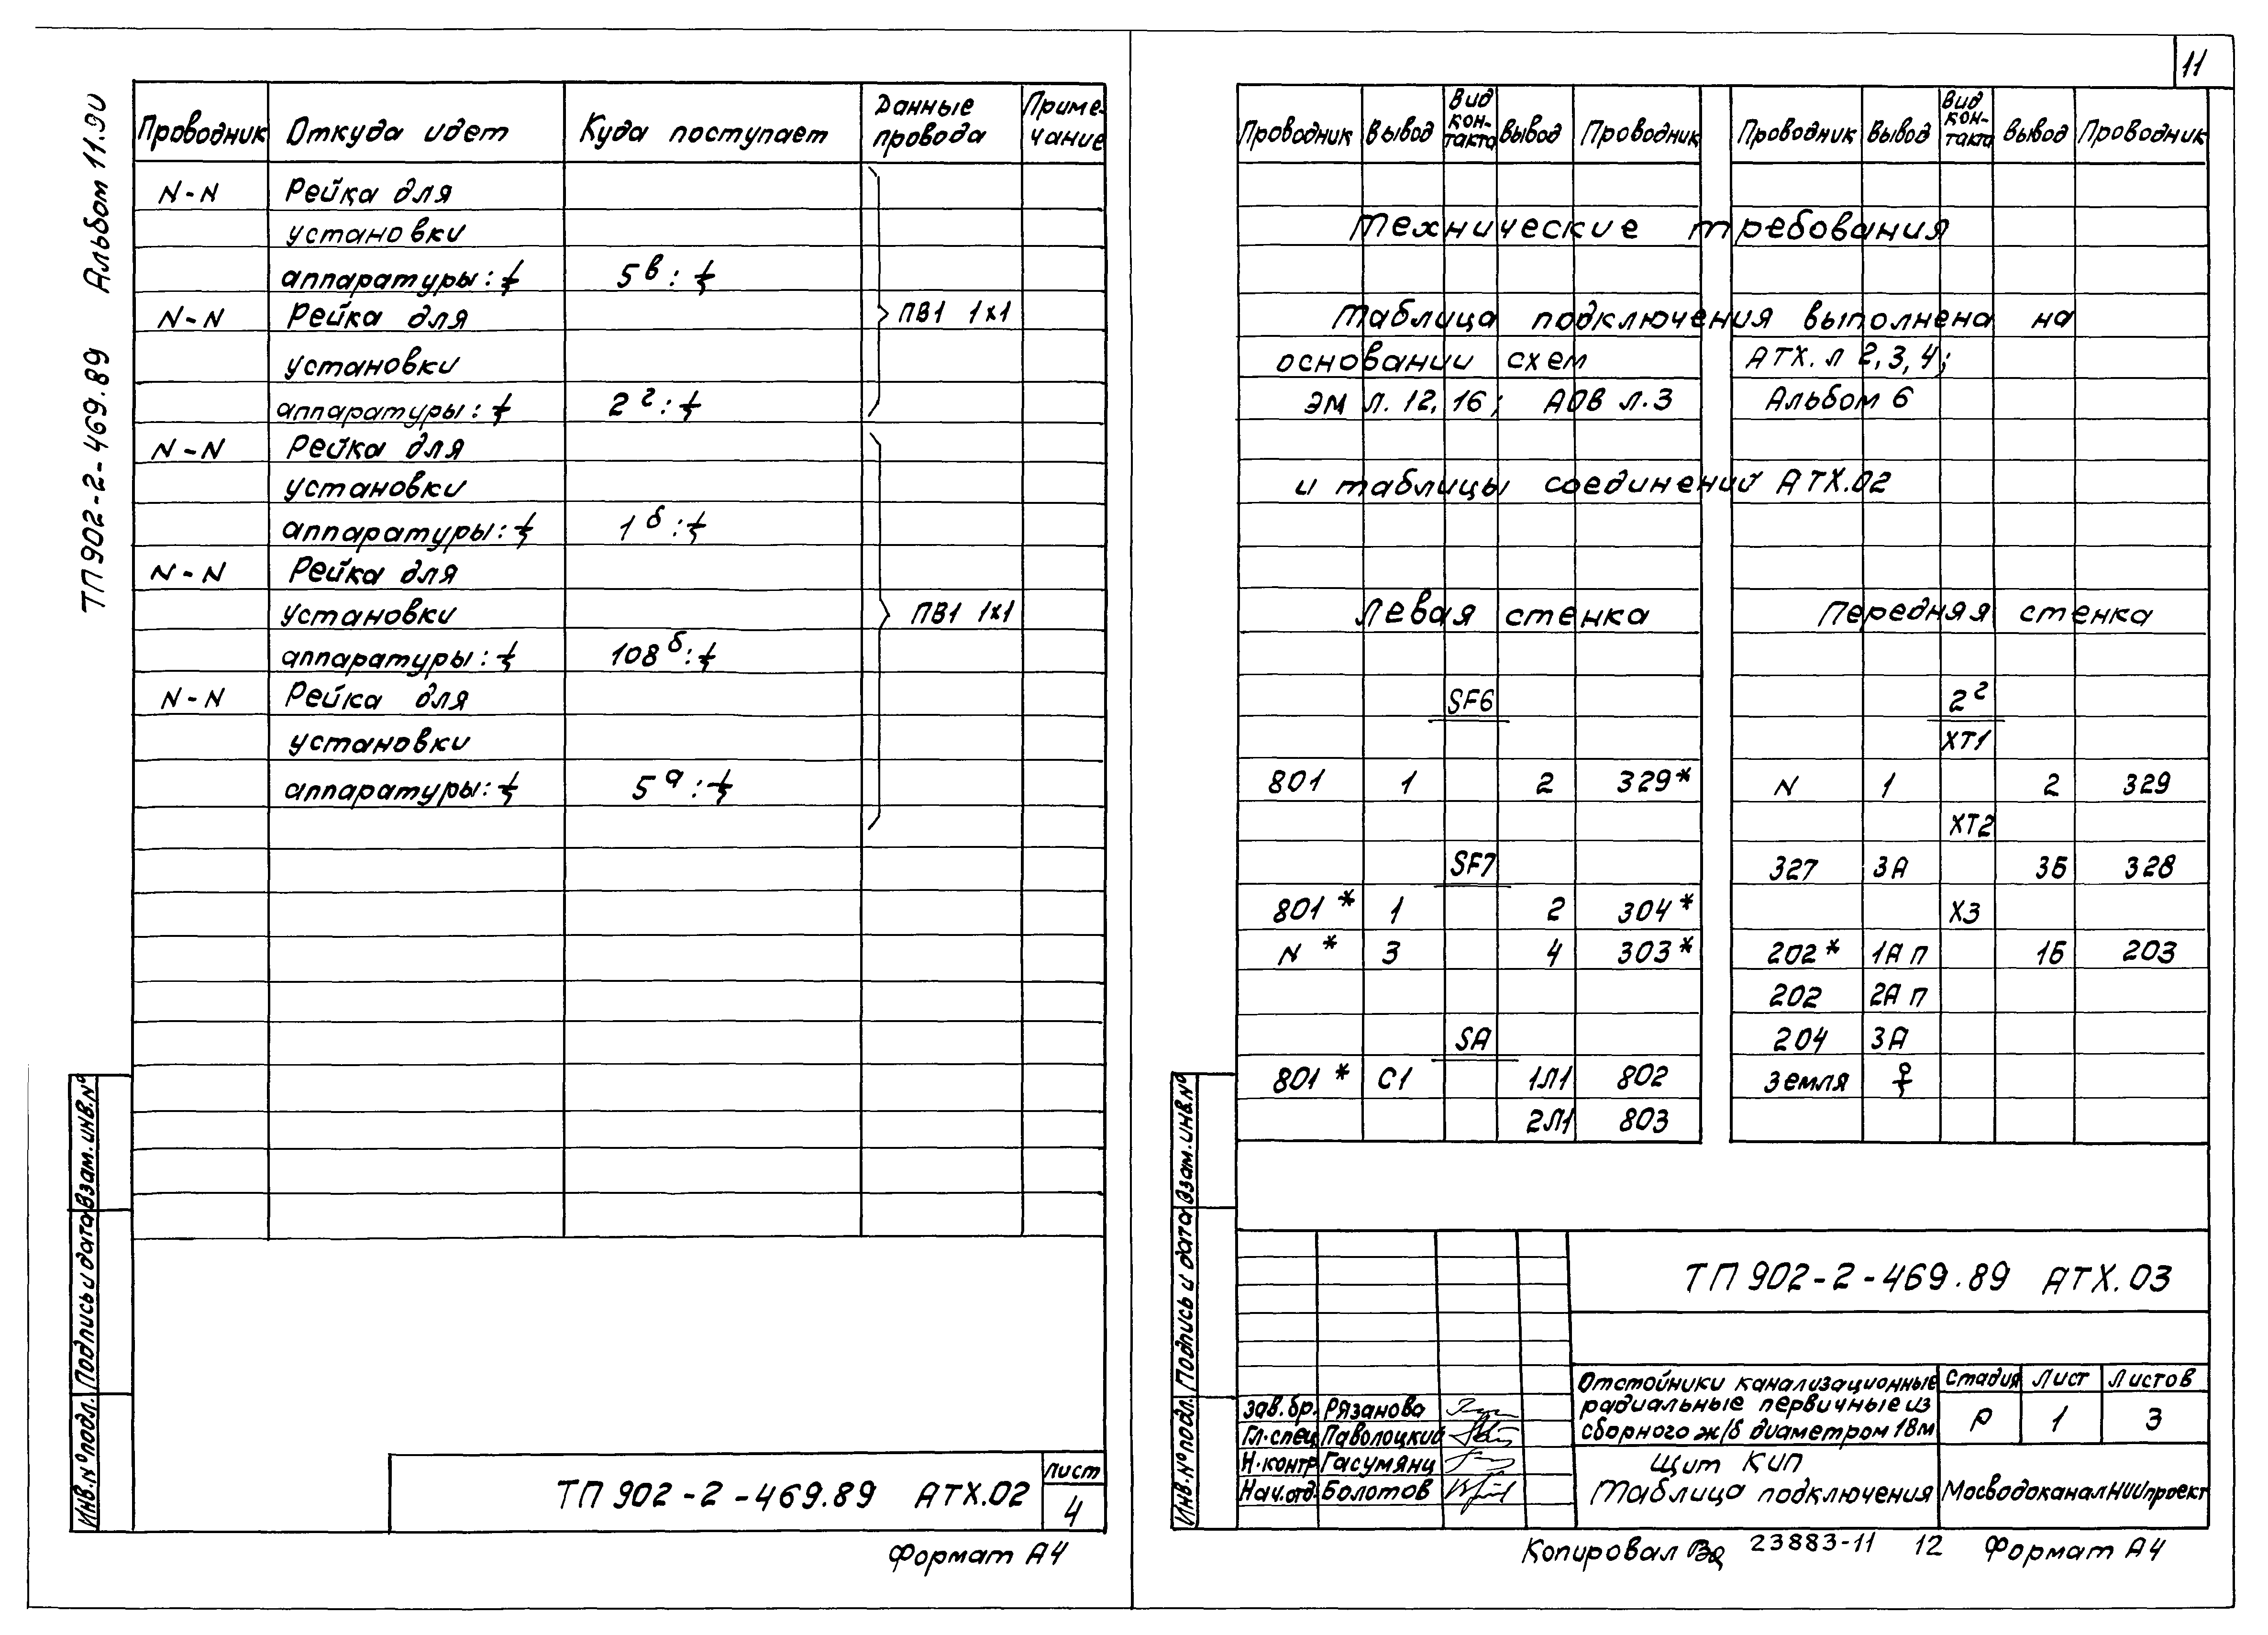 11
ТП 902-2-469.89 Альбом 11.90
Проводник Откуда идет Куда поступает Данные провода Приме-чание
N-N Рейка для
установки
аппаратуры: 5в:
N-N Рейка для ПВ1 1х1
установки
аппаратуры: 2г:
N-N Рейка для
установки
аппаратуры: 1б:
N-N Рейка для
установки ПВ1 1х1
аппаратуры: 108б:
N-N Рейка для
установки
аппаратуры: 5а:
Взам.инв.№
Подпись и дата
Инв.№подл.
ТП 902-2-469.89 АТХ.02
Лист
4
Формат А4
Проводник Вывод Вид кон-такта Вывод Проводник Проводник Вывод Вид кон-такта Вывод Проводник
Технические требования
Таблица подключения выполнена на
основании схем АТХ. л 2,3,4;
ЭМ л. 12, 16; АОВ л.3 Альбом 6
и таблицы соединений АТХ.02
Левая стенка Передняя стенка
SF6 2г
ХТ1
801 1 2 329* N 1 2 329
ХТ2
SF7 327 3А 3Б 328
801* 1 2 304* Х3
N* 3 4 303* 202* 1А П 1Б 203
202 2А П
SA 204 3А
801* С1 1Л1 802 Земля
2Л1 803
Взам.инв.№
Подпись и дата
Инв.№подл.
ТП 902-2-469.89 АТХ.03
Отстойники канализационные
радиальные первичные из
сборного ж/б диаметром 18м
Стадия Лист Листов
Р 1 3
Зав.бр. Рязанова
Гл.спец Паволоцкий
Н.контр Гасумянц
Нач.отд. Болотов
Щит КИП
Таблица подключения
МосводоканалНИИпроект
Копировал 23883-11 12 Формат А4